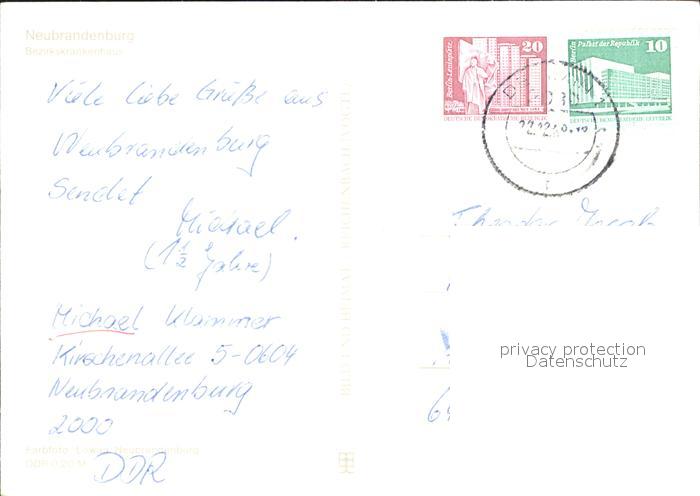 Neubrandenburg
Bezirkskrankenhaus
Viele liebe Grüße aus
Neubrandenburg
Sendet
Michael.
(1 1/2 Jahre)
Michael Klammer
Kirschenallee 5-0604
Neubrandenburg
2000
DDR
Farbfoto: Neubrandenburg
DDR 0,20 M
BILD UND HEIMAT REICHENBACH
Berlin-Leninplatz
20
DEUTSCHE DEMOKRATISCHE REPUBLIK
Berlin, Palast der Republik
10
DEUTSCHE DEMOKRATISCHE REPUBLIK
Theodor
privacy protection
Datenschutz